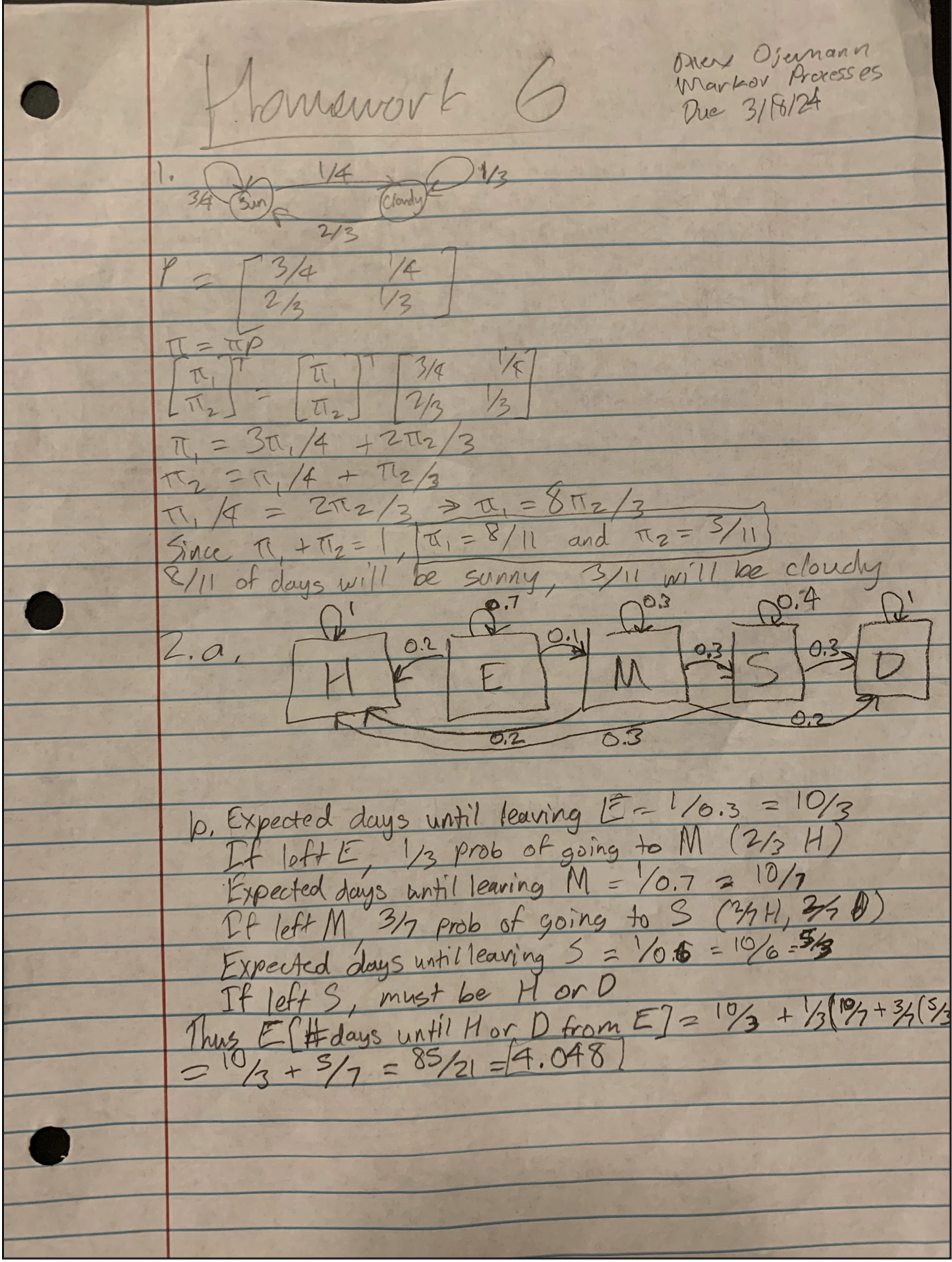 Homework 6
Ojemann
Markov Processes
Due 3/18/24
1.
3/4 Sun 1/4 Cloudy 1/3
2/3
P = [ 3/4 1/4
2/3 1/3 ]
π = πP
[π₁ π₂]ᵀ = [π₁ π₂]ᵀ [ 3/4 1/4
2/3 1/3 ]
π₁ = 3π₁/4 + 2π₂/3
π₂ = π₁/4 + π₂/3
π₁/4 = 2π₂/3 → π₁ = 8π₂/3
Since π₁ + π₂ = 1, π₁ = 8/11 and π₂ = 3/11
8/11 of days will be sunny, 3/11 will be cloudy
1 0.7 0.3 0.4 1
2. a. H 0.2 E 0.1 M 0.3 S 0.3 D
0.2 0.3 0.2
b. Expected days until leaving E = 1/0.3 = 10/3
If left E, 1/3 prob of going to M (2/3 H)
Expected days until leaving M = 1/0.7 = 10/7
If left M, 3/7 prob of going to S (2/7 H, 2/7 D)
Expected days until leaving S = 1/0.6 = 10/6 = 5/3
If left S, must be H or D
Thus E[# days until H or D from E] = 10/3 + 1/3(10/7 + 3/7(5/3
= 10/3 + 5/7 = 85/21 = 4.048